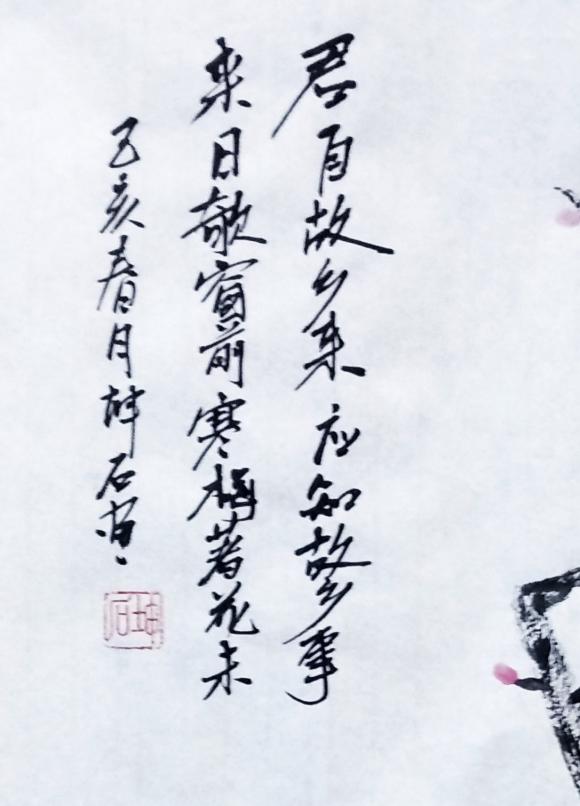 君自故乡来应知故乡事
来日欹窗前寒梅著花未
己亥春月坤石
坤石